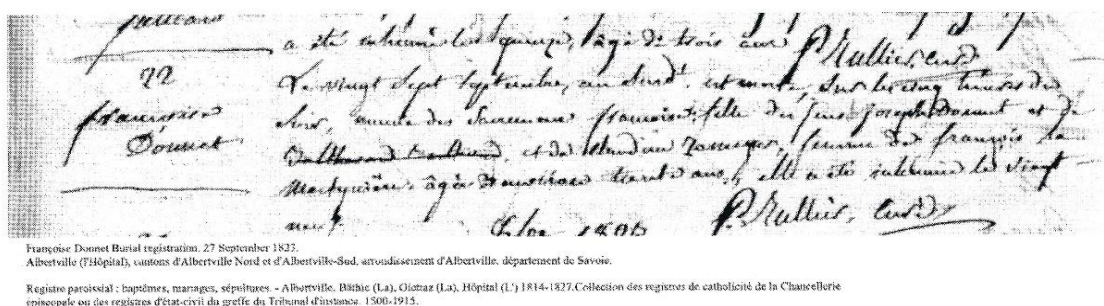 a été inhumé le quinze, âgé de trois ans P. Rullier, curé
22
Françoise
Donnet
Le vingt sept septembre, an surdt. est morte, sur les cinq heures du
soir, munie des Sacremens françoise fille de feus joseph Donnet et de
et de claudine femme de françois la
âgée d'environ trente ans, elle a été inhumée le vingt
neuf
P. Rullier, curé
Françoise Donnet Burial registration. 27 September 1825.
Albertville (l'Hôpital), cantons d'Albertville Nord et d'Albertville-Sud, arrondissement d'Albertville, département de Savoie.
Registre paroissial : baptêmes, mariages, sépultures. - Albertville, Bâthie (La), Giettaz (La), Hôpital (L') 1814-1827.Collection des registres de catholicité de la Chancellerie
épiscopale ou des registres d'état-civil du greffe du Tribunal d'instance. 1500-1915.